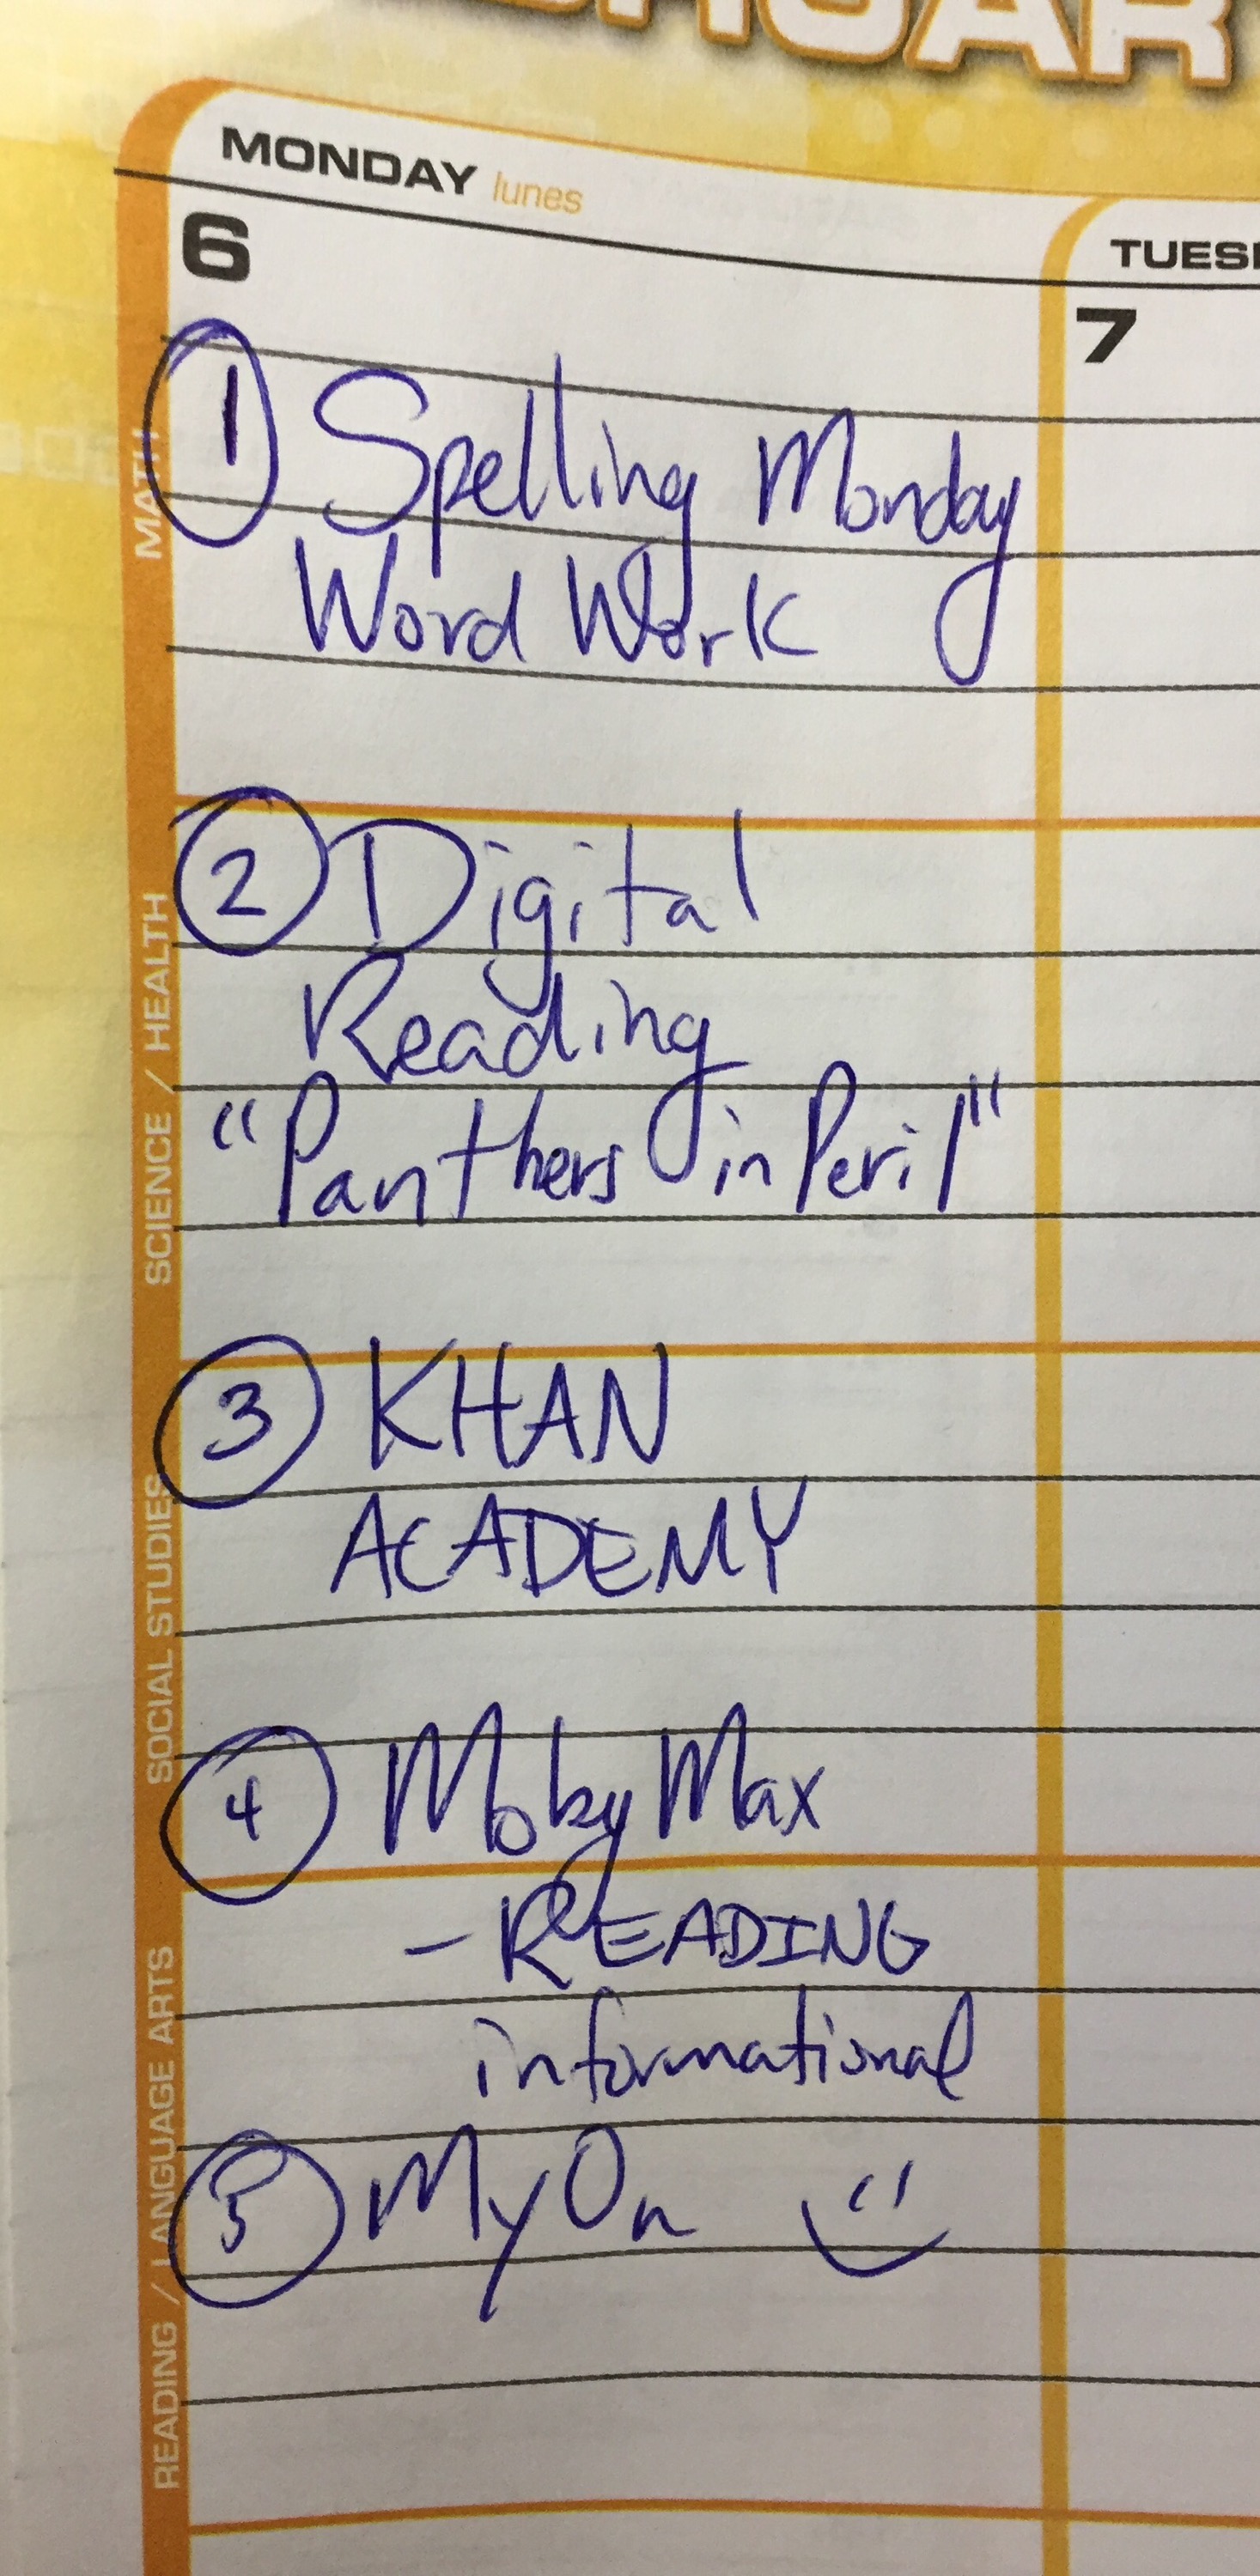 MONDAY lunes
TUES
6
7
① Spelling Monday
Word Work
② Digital
Reading
"Panthers in Peril"
③ KHAN
ACADEMY
④ Moby Max
- READING
informational
⑤ MyOn
MATH
SCIENCE / HEALTH
SOCIAL STUDIES
READING / LANGUAGE ARTS